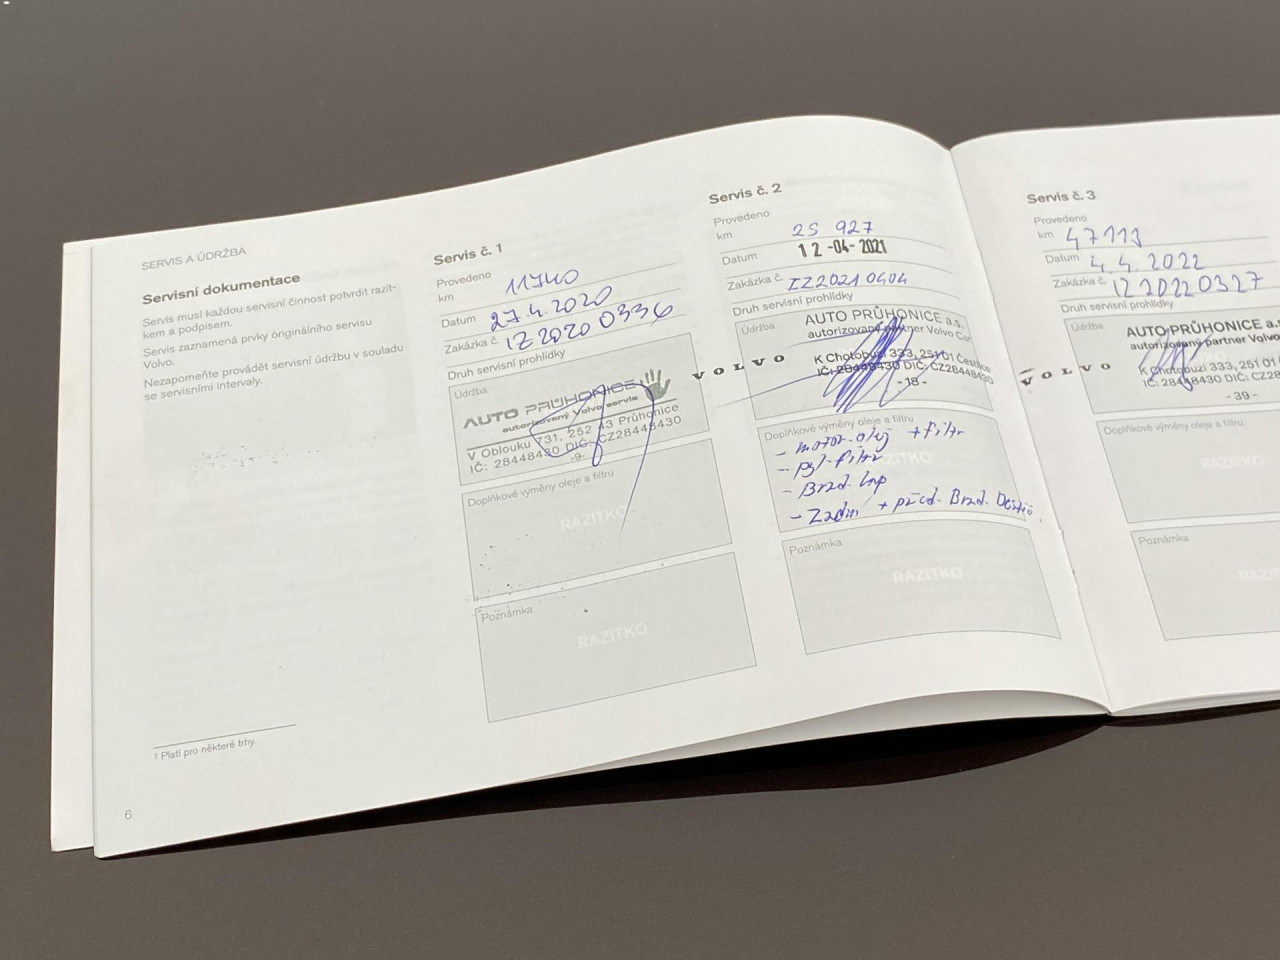 SERVIS A ÚDRŽBA
Servisní dokumentace
Servis musí každou servisní činnost potvrdit razít-
kem a podpisem.
Servis zaznamená prvky originálního servisu
Volvo.
Nezapomeňte provádět servisní údržbu v souladu
se servisními intervaly.
1 Platí pro některé trhy.
6
Servis č. 1
Provedeno
km 11740
Datum 27.4.2020
Zakázka č. IZ 2020 0336
Druh servisní prohlídky
Údržba
AUTO PRŮHONICE
autorizovaný Volvo servis
V Oblouku 731, 252 43 Průhonice
IČ: 28448430 DIČ: CZ28448430
-9-
Doplňkové výměny oleje a filtru
RAZÍTKO
Poznámka
RAZÍTKO
Servis č. 2
Provedeno
km 25 927
Datum 12-04-2021
Zakázka č. IZ2021 0404
Druh servisní prohlídky
Údržba
AUTO PRŮHONICE a.s.
autorizovaný partner Volvo Car
VOLVO
K Chotobuzi 333, 251 01 Čestlice
IČ: 28448430 DIČ: CZ28448430
- 18 -
Doplňkové výměny oleje a filtru
- motor. olej + filtr
- pyl. filtr
RAZÍTKO
- Brzd.
- Zadní + před. Brzd.
Poznámka
RAZÍTKO
Servis č. 3
Provedeno
km 47113
Datum 4.4. 2022
Zakázka č. IZ 2022 0327
Druh servisní prohlídky
Údržba
AUTO PRŮHONICE a
autorizovaný partner Volvo
VOLVO
K Chotobuzi 333, 251 01
IČ: 28448430 DIČ: CZ28
- 39 -
Doplňkové výměny oleje a filtru
RAZÍTKO
Poznámka
RAZÍT